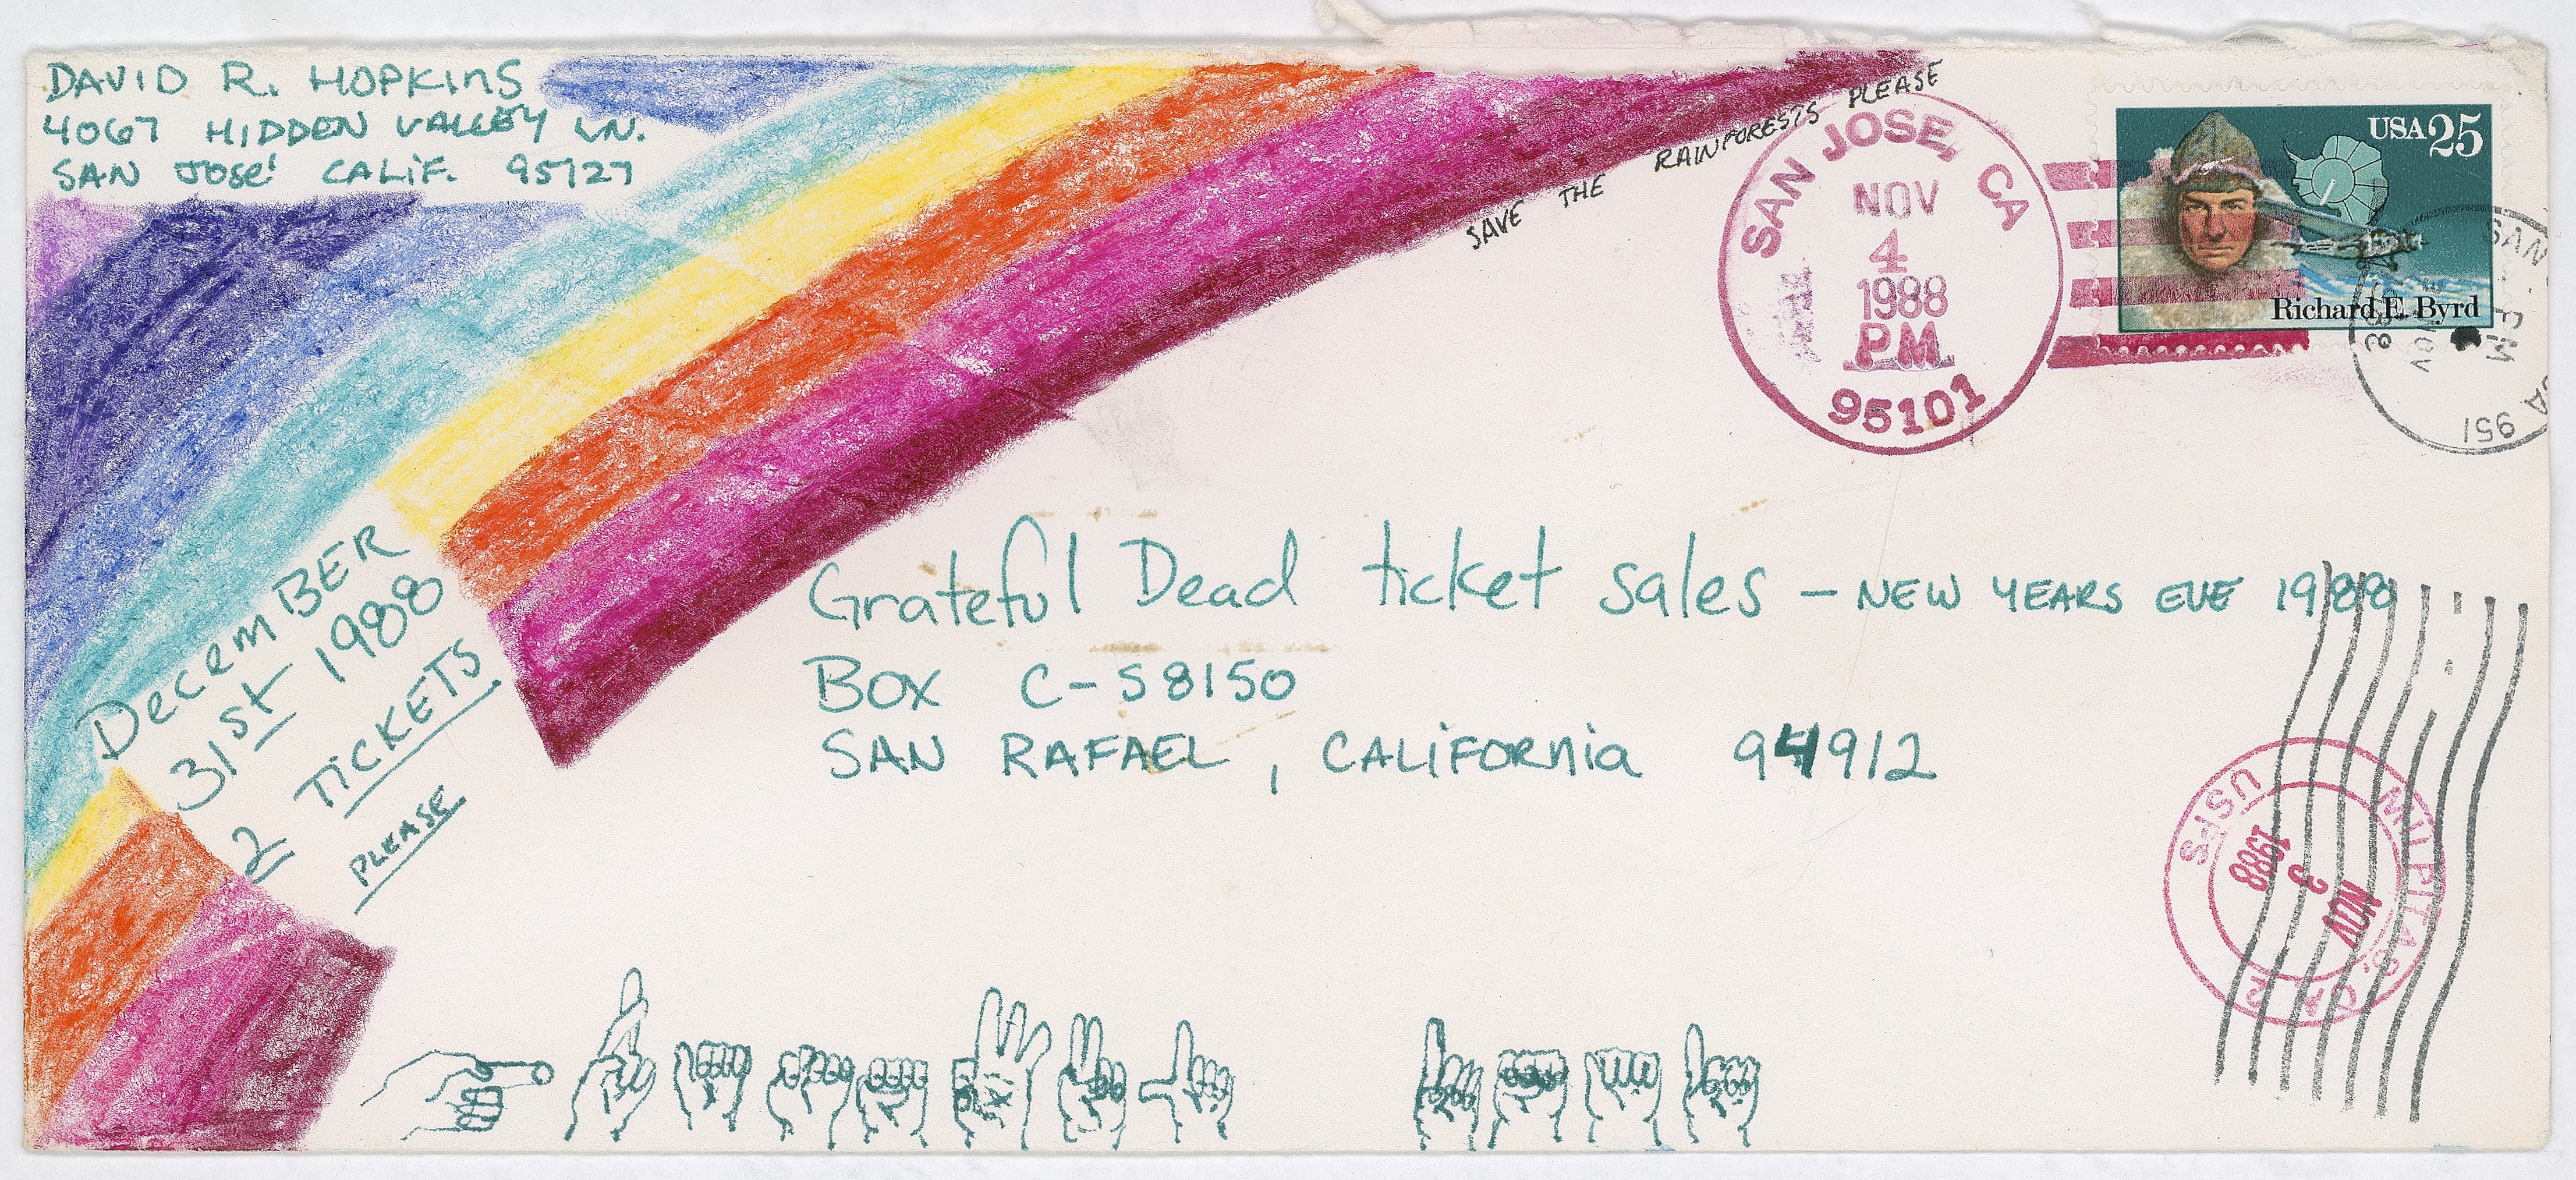 DAVID R. HOPKINS
4067 HIDDEN VALLEY LN.
SAN José CALIF. 95127
SAVE THE RAINFORESTS PLEASE
SAN JOSE, CA
NOV
4
1988
PM
95101
USA 25
Richard E. Byrd
DecemBER
31st 1988
2 TICKETS
PLEASE
Grateful Dead ticket sales – NEW YEARS EVE 1988
Box C-S8150
SAN RAFAEL, CALIFORNIA 94912
MILPITAS, CA
NOV 3 1988
USPS